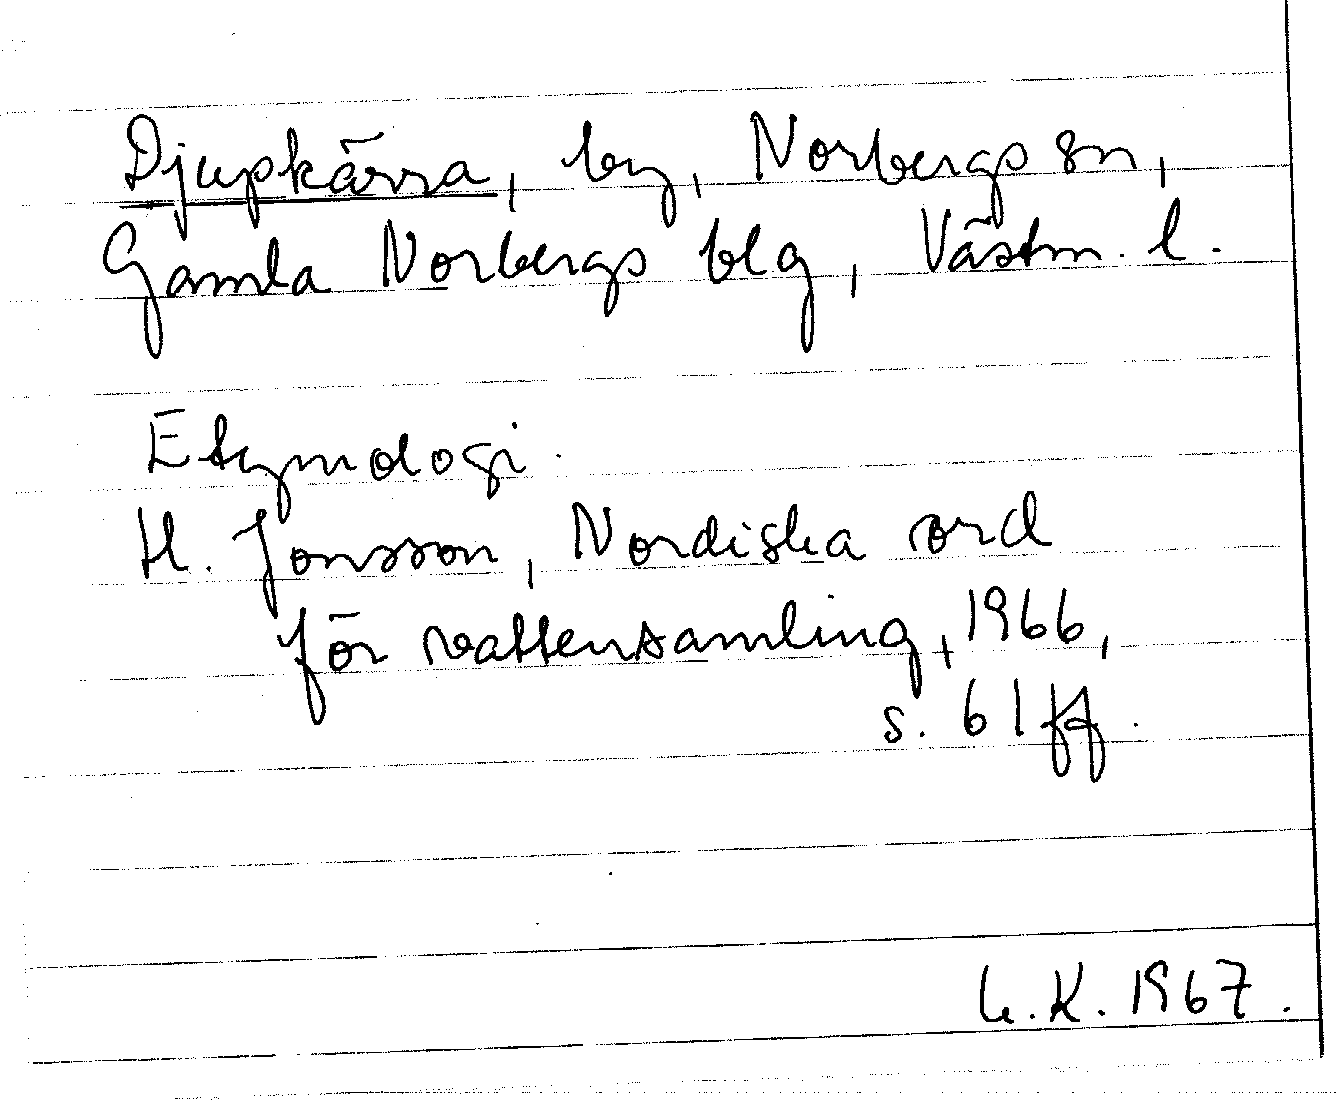 Djupkärra, by, Norbergs sn,
Gamla Norbergs blg, Västm. l.
Etymologi.
H. Jonsson, Nordiska ord
för vattensamling, 1966,
s. 61 ff.
L.K. 1967.